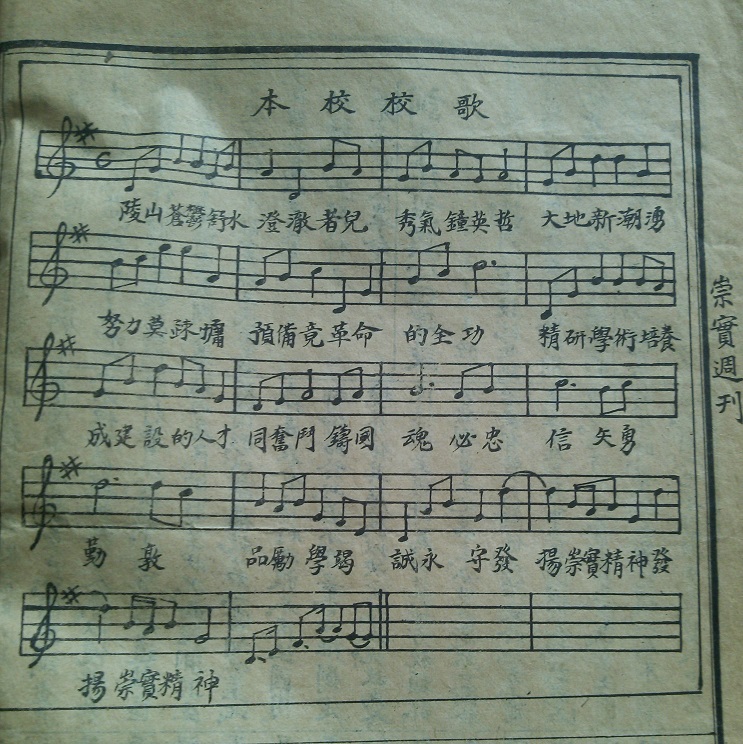 本校校歌
陵山蒼鬱舒水澄澈者兒秀氣鐘英哲大地新潮湧
努力莫疎慵預備竟革命的全功精研學術培養
成建設的人才同奮鬥鑄國魂必忠信矢勇
勤敦品勵學竭誠永守發揚崇實精神發
揚崇實精神
崇實週刊